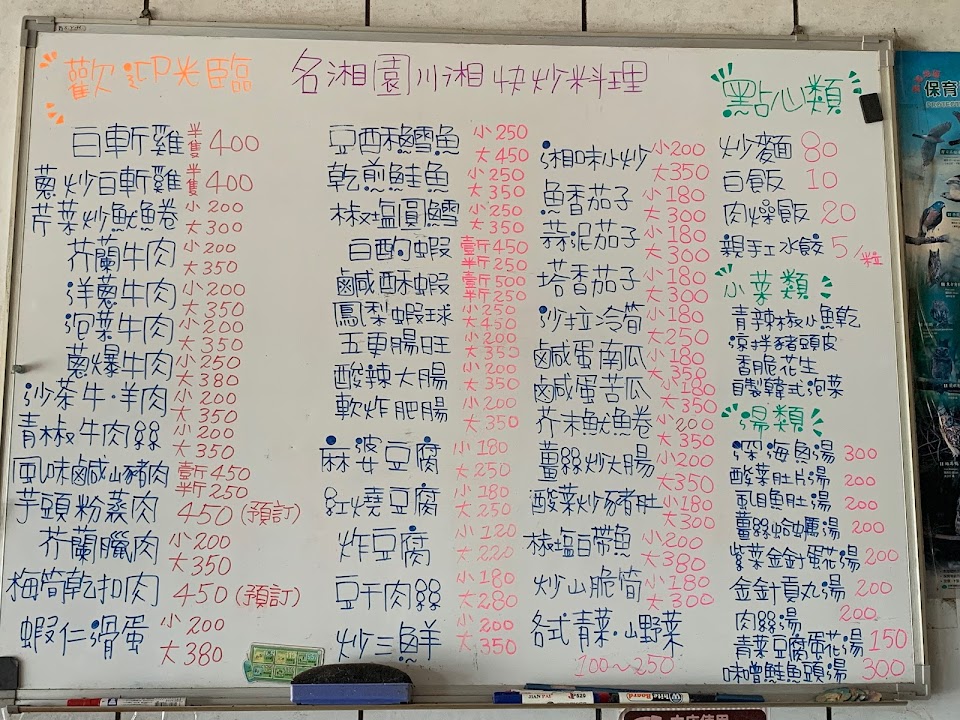 歡迎光臨
名湘園川湘快炒料理
白斬雞 半隻400
蔥炒白斬雞 半隻400
芹菜炒魷魚卷 小200 大300
芥蘭牛肉 小200 大350
洋蔥牛肉 小200 大350
泡菜牛肉 小200 大350
蔥爆牛肉 小250 大380
沙茶牛·羊肉 小200 大350
青椒牛肉絲 小200 大350
風味鹹山豬肉 壹斤450 半斤250
芋頭粉蒸肉 450(預訂)
芥蘭臘肉 小200 大350
梅筍乾扣肉 450(預訂)
蝦仁滑蛋 小200 大380
豆酥鱈魚 小250 大450
乾煎鮭魚 小250 大350
椒塩圓鱈 小250 大350
白酌蝦 壹斤450 半斤250
鹹酥蝦 壹斤500 半斤250
鳳梨蝦球 小250 大450
五更腸旺 小200 大350
酸辣大腸 小200 大350
軟炸肥腸 小200 大350
麻婆豆腐 小180 大250
紅燒豆腐 小180 大250
炸豆腐 小120 大220
豆干肉絲 小180 大280
炒三鮮 小200 大350
湘味小炒 小200 大350
魚香茄子 小180 大300
蒜泥茄子 小180 大300
塔香茄子 小180 大300
沙拉冷筍 小180 大250
鹹蛋南瓜 小180 大350
鹹蛋苦瓜 小180 大350
芥末魷魚卷 小200 大350
薑絲炒大腸 小200 大350
酸菜炒豬肚 小180 大300
椒塩白帶魚 小200 大380
炒山脆筍 小180 大300
各式青菜·山野菜
100~250
點心類
炒麵 80
白飯 10
肉燥飯 20
親手工水餃 5/粒
小菜類
青辣椒小魚乾
涼拌豬頭皮
香脆花生
自製韓式泡菜
湯類
深海魚湯 300
酸菜肚片湯 200
虱目魚肚湯 200
薑絲蛤蠣湯 200
紫菜金針蛋花湯 200
金針貢丸湯 200
肉絲湯 200
青菜豆腐蛋花湯 150
味噌鮭魚頭湯 300
保育